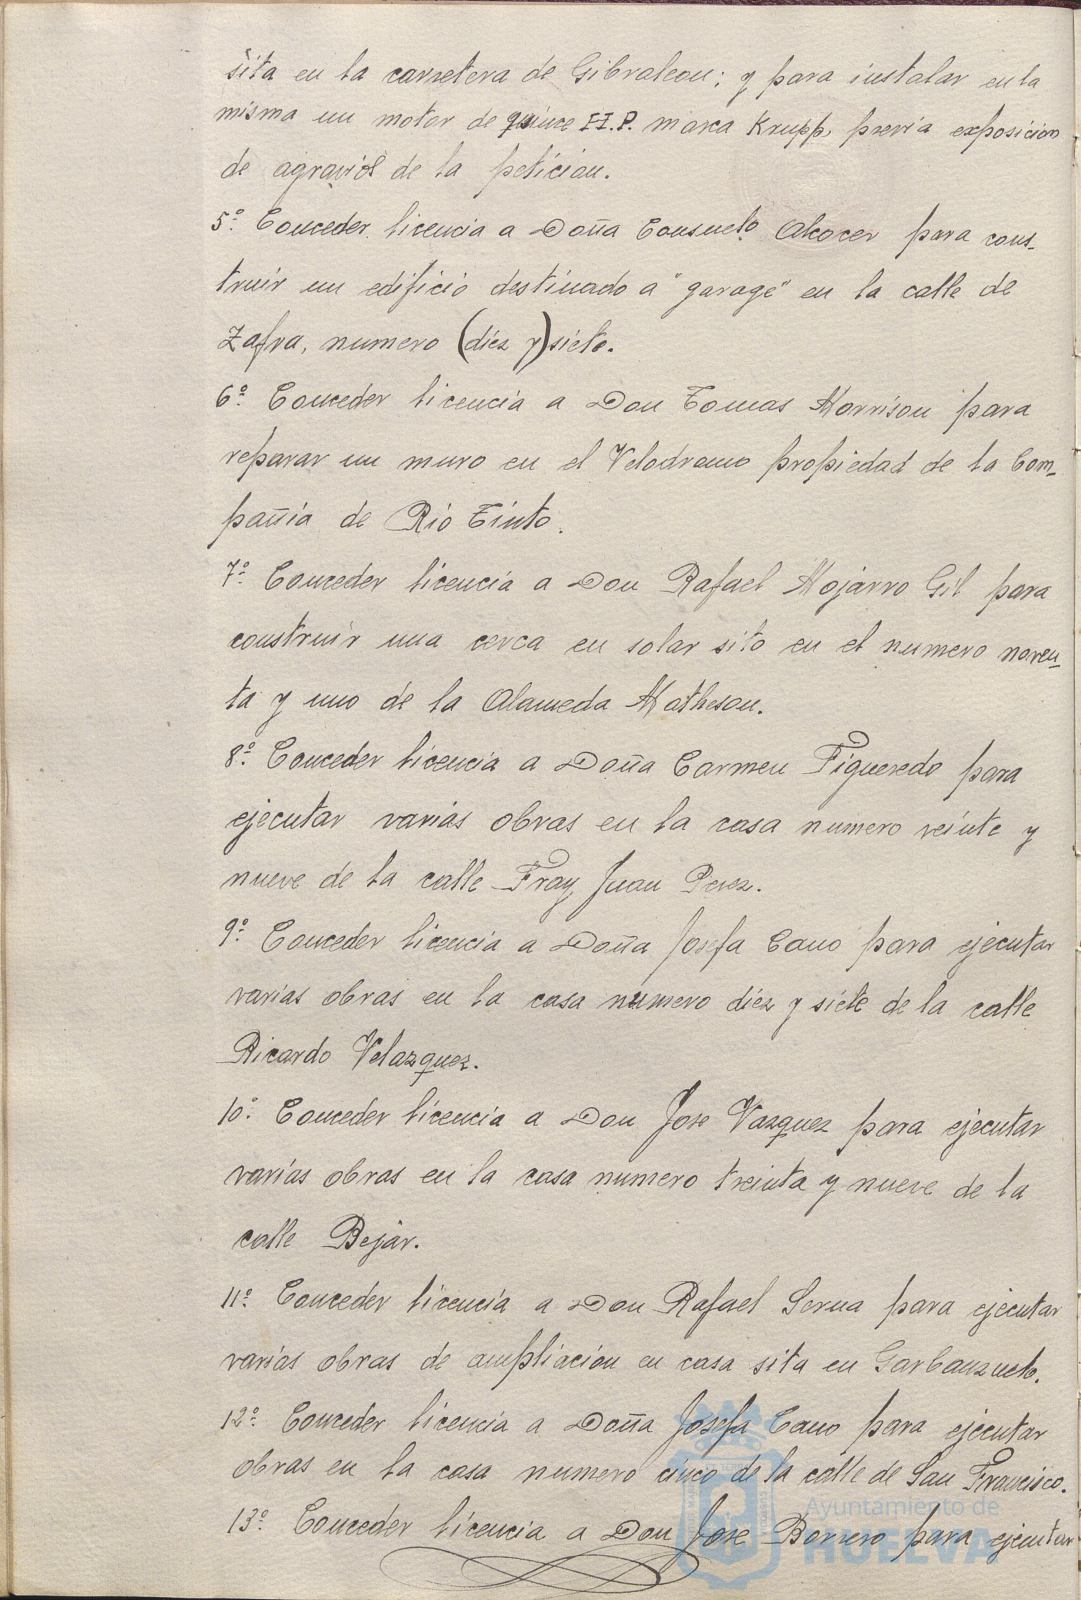 sita en la carretera de Gibraleon; y para instalar en la
misma un motor de quince H.P. marca Krupp, previa exposicion
de agravios de la peticion.
5º Conceder licencia a Doña Consuelo Alcocer para cons-
truir un edificio destinado a "garage" en la calle de
Zafra, numero (diez y) siete.
6º Conceder licencia a Don Tomas Morrison para
reparar un muro en el Velodromo propiedad de la Com-
pañia de Rio Tinto.
7º Conceder licencia a Don Rafael Mojarro Gil para
construir una cerca en solar sito en el numero noven-
ta y uno de la Alameda Matheson.
8º Conceder licencia a Doña Carmen Figueredo para
ejecutar varias obras en la casa numero veinte y
nueve de la calle Fray Juan Perez.
9º Conceder licencia a Doña Josefa Cano para ejecutar
varias obras en la casa número diez y siete de la calle
Ricardo Velazquez.
10º Conceder licencia a Don Jose Vazquez para ejecutar
varias obras en la casa numero treinta y nueve de la
calle Bejar.
11º Conceder licencia a Don Rafael Serna para ejecutar
varias obras de ampliacion en casa sita en Garbanzuelo.
12º Conceder licencia a Doña Josefa Cano para ejecutar
obras en la casa numero cinco de la calle de San Francisco.
13º Conceder licencia a Don Jose Borrero para ejecutar
Ayuntamiento de
HUELVA